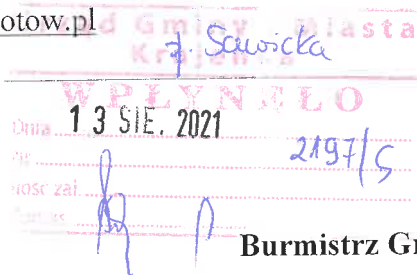 otow.pl
d Gminy i Miasta
z. Sawicka
Krajenka
WPŁYNĘŁO
Dnia 13 SIE. 2021
2197/S
ilość zał.
Burmistrz G